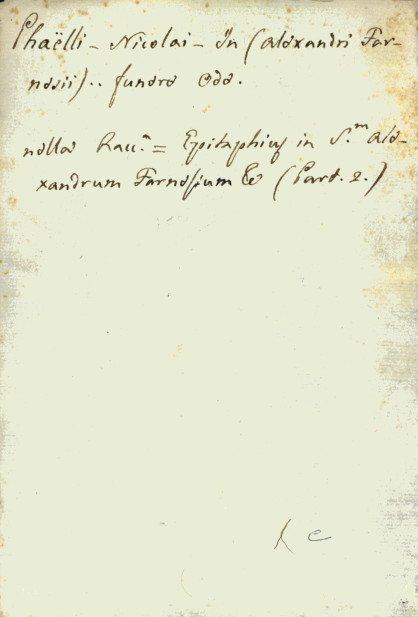 Phaëlli - Nicolai - In (Alexandri Far-
nesii) .. funere Ode.
nella Racc.ᵃ = Epitaphia in S.ᵐ Ale-
xandrum Farnesium &c (Part. 2.)